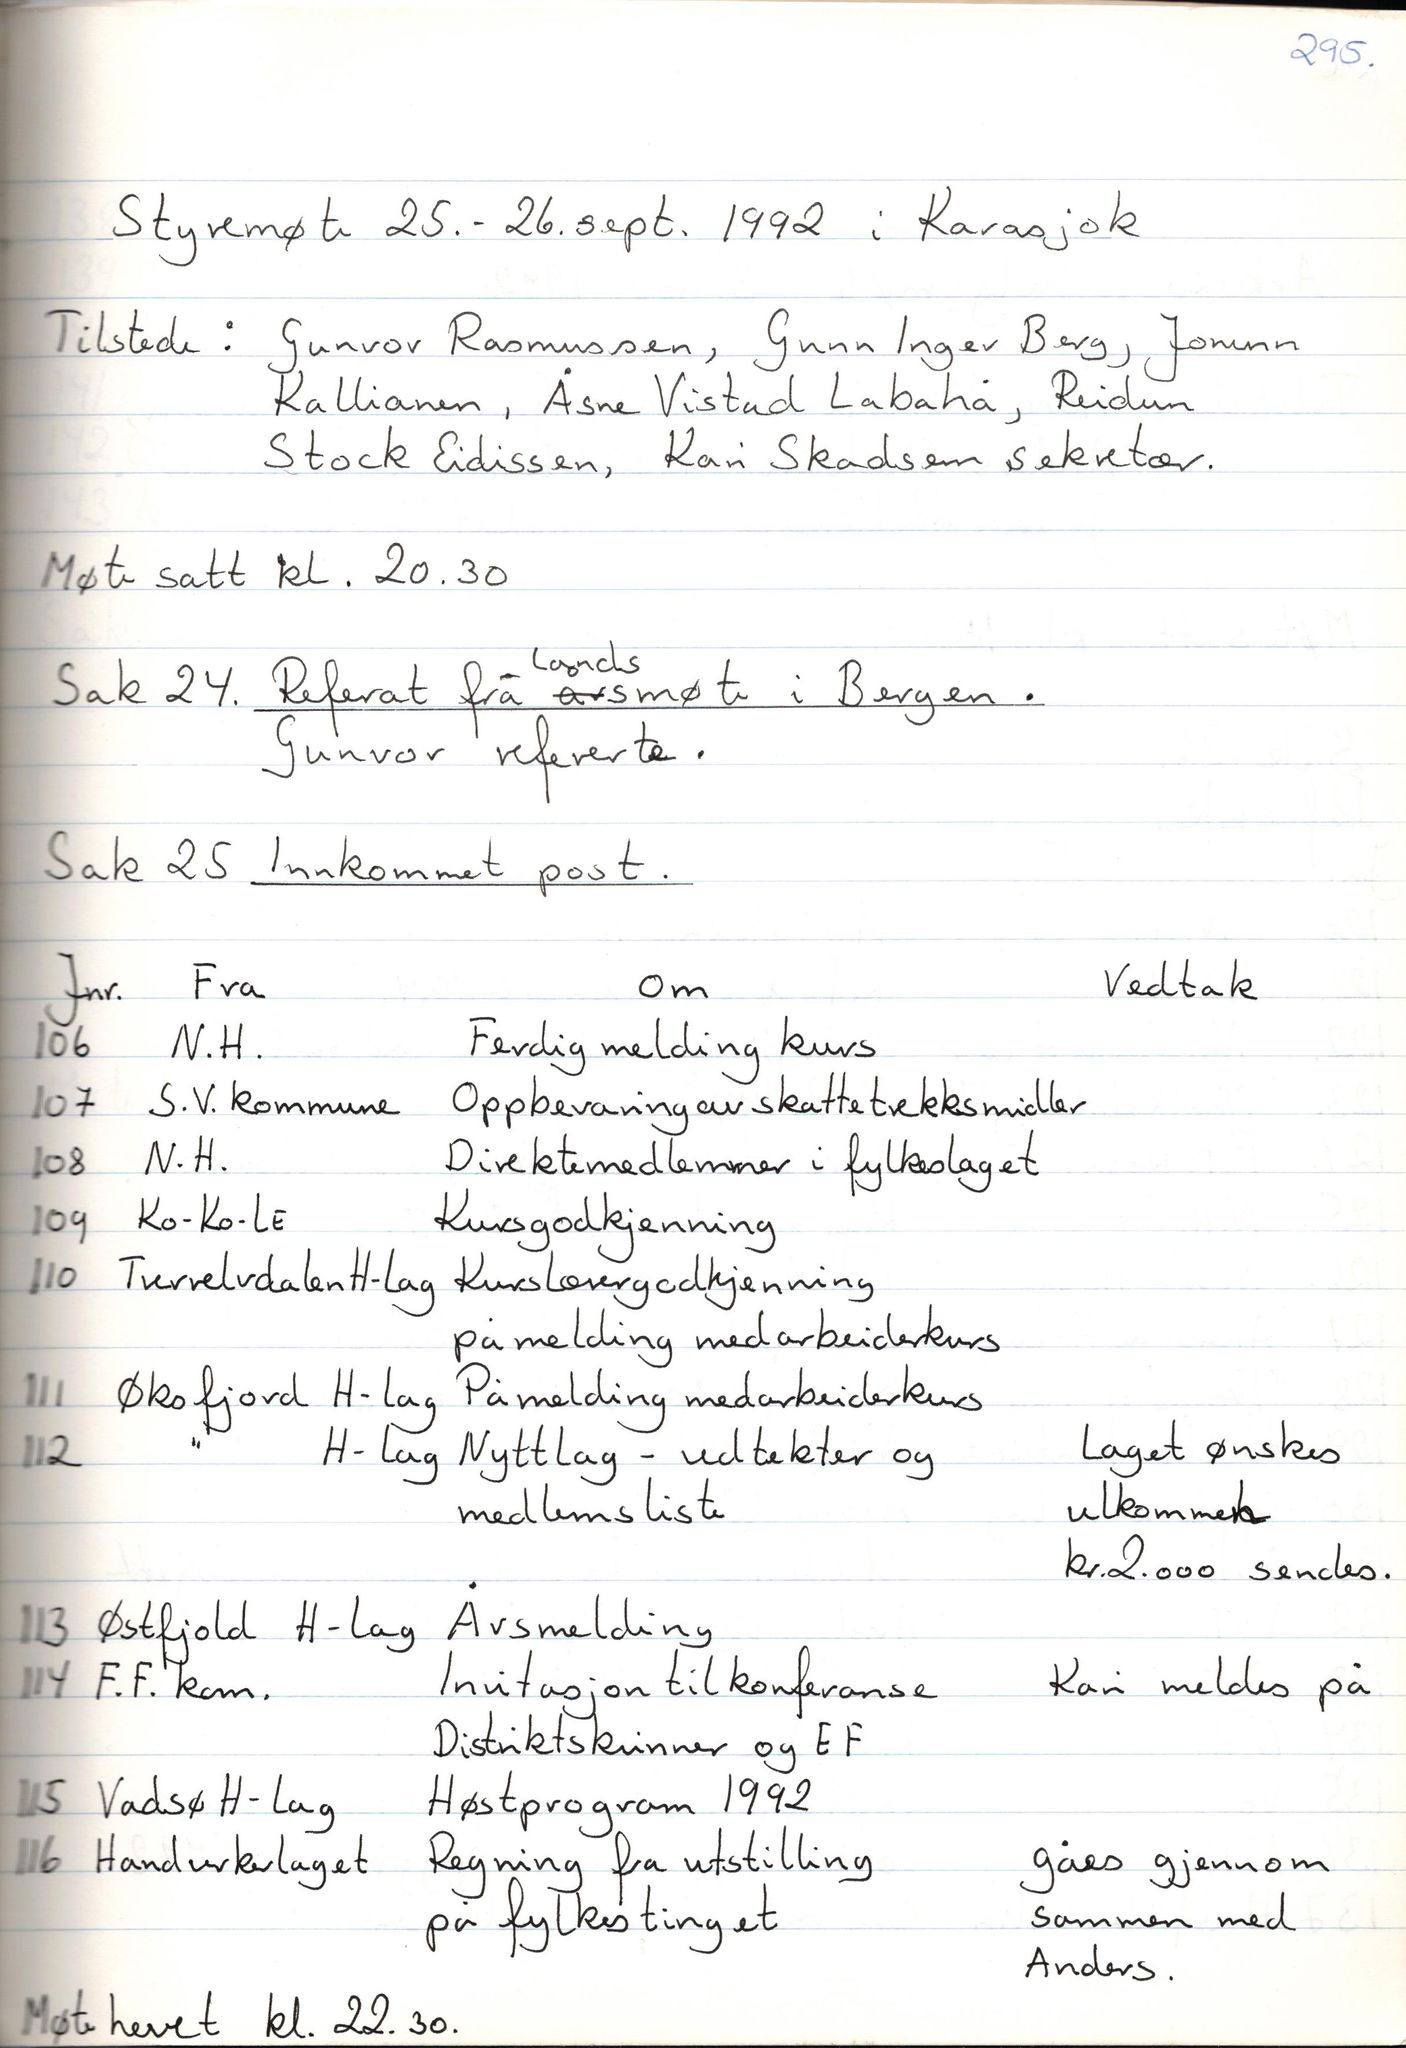 295.
Styremøte 25.-26. sept. 1992 i Karasjok
Tilstede: Gunvor Rasmussen, Gunn Inger Berg, Jorunn
Kallianen, Åsne Vistad Labahå, Reidun
Stock Eidissen, Kari Skadsem sekretær.
Møte satt kl. 20.30
Sak 24. Referat frå landsmøte i Bergen.
Gunvor refererte.
Sak 25 Innkommet post.
Jnr. Fra Om Vedtak
106 N.H. Ferdigmelding kurs
107 S.V. kommune Oppbevaring av skattetrekksmidler
108 N.H. Direktemedlemmer i fylkeslaget
109 Ko-Ko-LE Kursgodkjenning
110 Tverrelvdalen H-lag Kurslærergodkjenning
påmelding medarbeiderkurs
111 Øksfjord H-lag Påmelding medarbeiderkurs
112 " H-lag Nytt lag - vedtekter og Laget ønskes
medlemsliste velkommen
kr. 2.000 sendes.
113 Østfjold H-lag Årsmelding
114 F.F. kom. Invitasjon til konferanse Kari meldes på
Distriktskvinner og EF
115 Vadsø H-lag Høstprogram 1992
116 Handverkerlaget Regning fra utstilling gåes gjennom
på fylkestinget sammen med
Anders.
Møte hevet kl. 22.30.